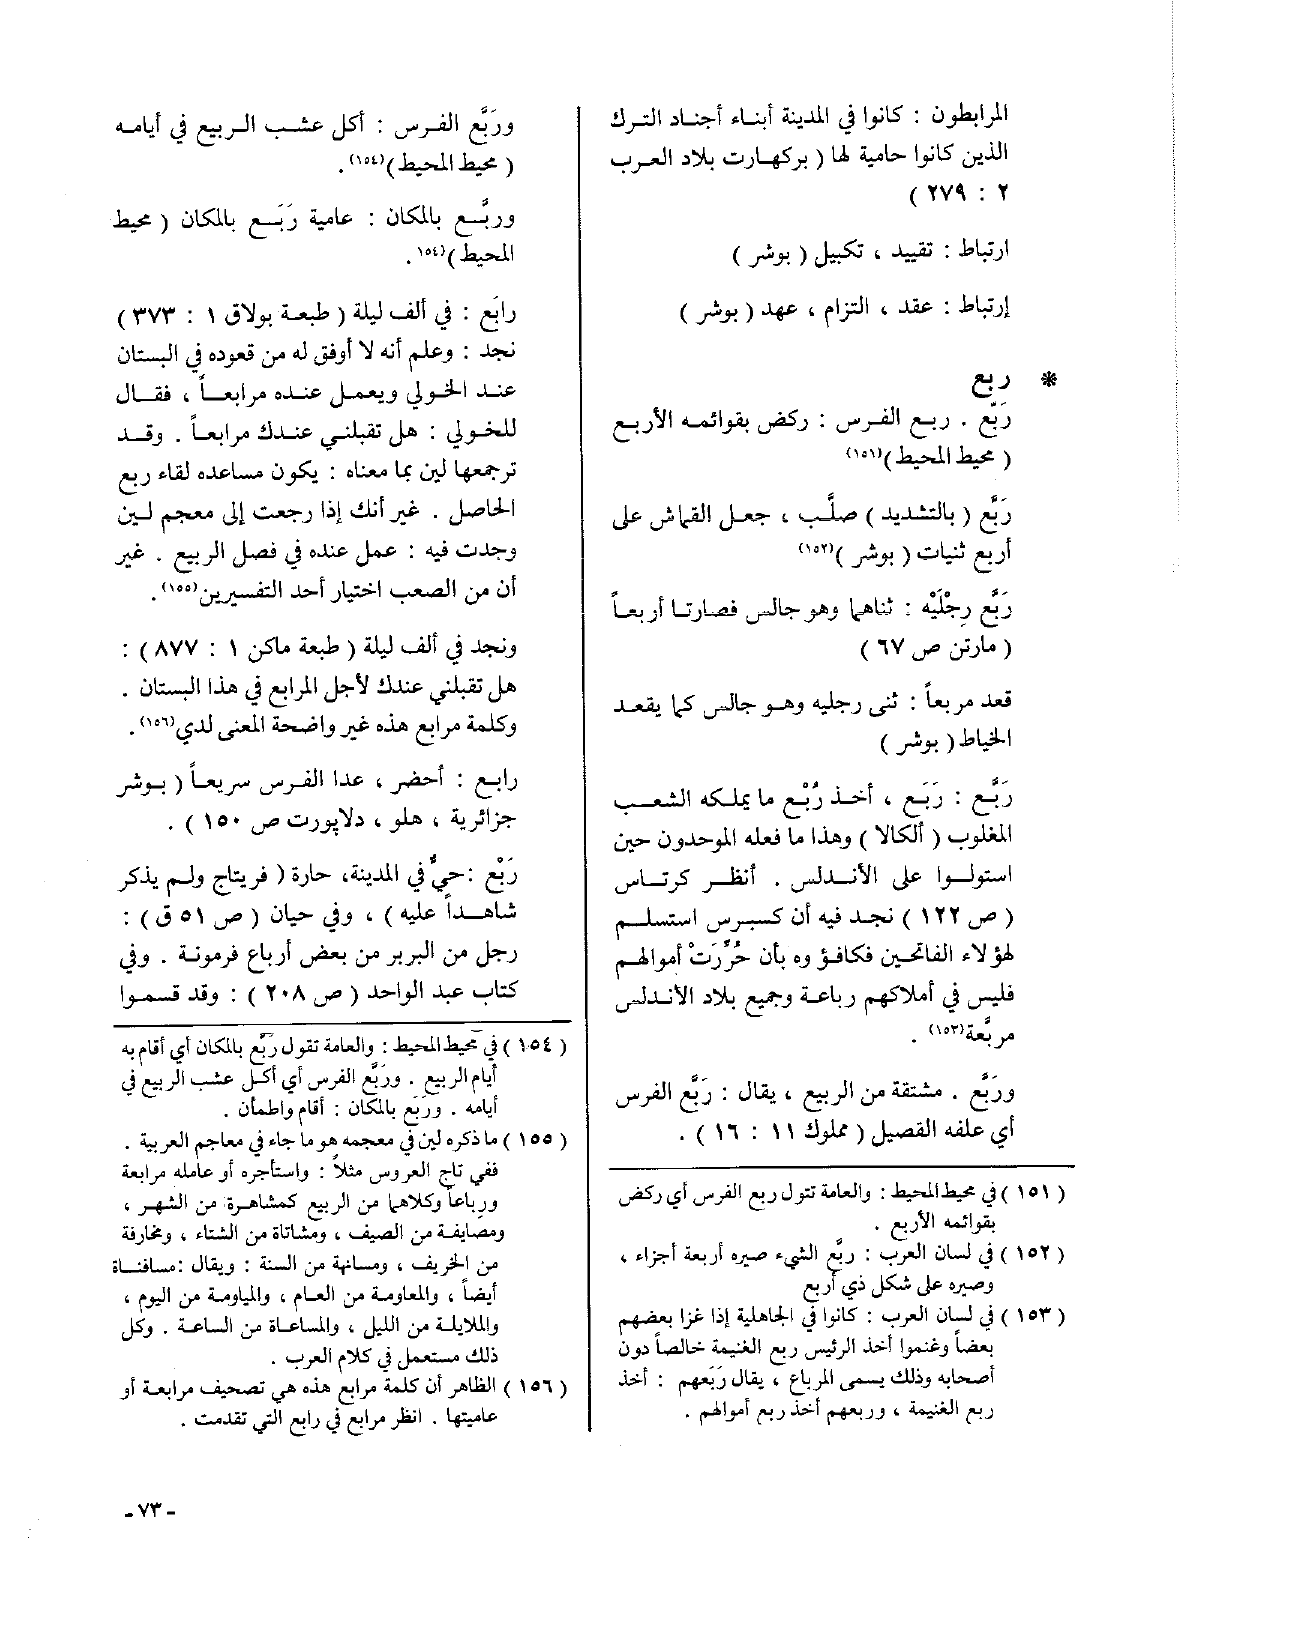 المرابطون : كانوا في المدينة أبناء أجناد الترك
الذين كانوا حامية لها ( بركهارت بلاد العرب
٢ : ٢٧٩ )
ارتباط : تقييد ، تكبيل ( بوشر )
إرتباط : عقد ، التزام ، عهد ( بوشر )
* ربع
رَبَّع . ربع الفرس : ركض بقوائمه الأربع
( محيط المحيط )(١٥١)
رَبَّع ( بالتشديد ) صلَّب ، جعل القماش على
أربع ثنيات ( بوشر )(١٥٢)
رَبَّع رِجْلَيْه : ثناهما وهو جالس فصارتا أربعاً
( مارتن ص ٦٧ )
قعد مربعاً : ثنى رجليه وهو جالس كما يقعد
الخياط ( بوشر )
رَبَّع : رَبَع ، أخذ رُبْع ما يملكه الشعب
المغلوب ( ألكالا ) وهذا ما فعله الموحدون حين
استولوا على الأندلس . أنظر كرتاس
( ص ١٢٢ ) نجد فيه أن كبرس استسلم
لهؤلاء الفاتحين فكافؤ وه بأن حُرِّرَتْ أموالهم
فليس في أملاكهم رباعة وجميع بلاد الأندلس
مربَّعة(١٥٣) .
ورَبَّع . مشتقة من الربيع ، يقال : رَبَّع الفرس
أي علفه القصيل ( مملوك ١١ : ١٦ ) .
( ١٥١ ) في محيط المحيط : والعامة تتول ربع الفرس أي ركض
بقوائمه الأربع .
( ١٥٢ ) في لسان العرب : ربَّع الشيء صيره أربعة أجزاء ،
وصيره على شكل ذي أربع
( ١٥٣ ) في لسان العرب : كانوا في الجاهلية إذا غزا بعضهم
بعضاً وغنموا أخذ الرئيس ربع الغنيمة خالصاً دون
أصحابه وذلك يسمى المرباع ، يقال رَبَعهم : أخذ
ربع الغنيمة ، وربعهم أخذ ربع أموالهم .
ورَبَّع الفرس : أكل عشب الربيع في أيامه
( محيط المحيط )(١٥٤) .
وربَّع بالمكان : عامية رَبَع بالمكان ( محيط
المحيط )(١٥٤) .
رابَع : في ألف ليلة ( طبعة بولاق ١ : ٣٧٣ )
نجد : وعلم أنه لا أوفق له من قعوده في البستان
عند الخولي ويعمل عنده مرابعاً ، فقال
للخولي : هل تقبلني عندك مرابعاً . وقد
ترجمها لين بما معناه : يكون مساعده لقاء ربع
الحاصل . غير أنك إذا رجعت إلى معجم لين
وجدت فيه : عمل عنده في فصل الربيع . غير
أن من الصعب اختيار أحد التفسيرين(١٥٥) .
ونجد في ألف ليلة ( طبعة ماكن ١ : ٨٧٧ ) :
هل تقبلني عندك لأجل المرابع في هذا البستان .
وكلمة مرابع هذه غير واضحة المعنى لدي(١٥٦) .
رابع : أحضر ، عدا الفرس سريعاً ( بوشر
جزائرية ، هلو ، دلاپورت ص ١٥٠ ) .
رَبْع : حيٌّ في المدينة، حارة ( فريتاج ولم يذكر
شاهداً عليه ) ، وفي حيان ( ص ٥١ ق ) :
رجل من البربر من بعض أرباع قرمونة . وفي
كتاب عبد الواحد ( ص ٢٠٨ ) : وقد قسموا
( ١٥٤ ) في محيط المحيط : والعامة تقول رَبَّع بالمكان أي أقام به
أيام الربيع . وربَّع الفرس أي أكل عشب الربيع في
أيامه . ورَبَع بالمكان : أقام واطمأن .
( ١٥٥ ) ما ذكره لين في معجمه هو ما جاء في معاجم العربية .
ففي تاج العروس مثلاً : واستأجره أو عامله مرابعة
ورباعاً وكلاهما من الربيع كمشاهرة من الشهر ،
ومصايفة من الصيف ، ومشاتاة من الشتاء ، ومخارفة
من الخريف ، ومسانهة من السنة : ويقال :مسافناة
أيضاً ، والمعاومة من العام ، والمياومة من اليوم ،
والملايلة من الليل ، والمساعاة من الساعة . وكل
ذلك مستعمل في كلام العرب .
( ١٥٦ ) الظاهر أن كلمة مرابع هذه هي تصحيف مرابعة أو
عاميتها . انظر مرابع في رابع التي تقدمت .
- ٧٣ -